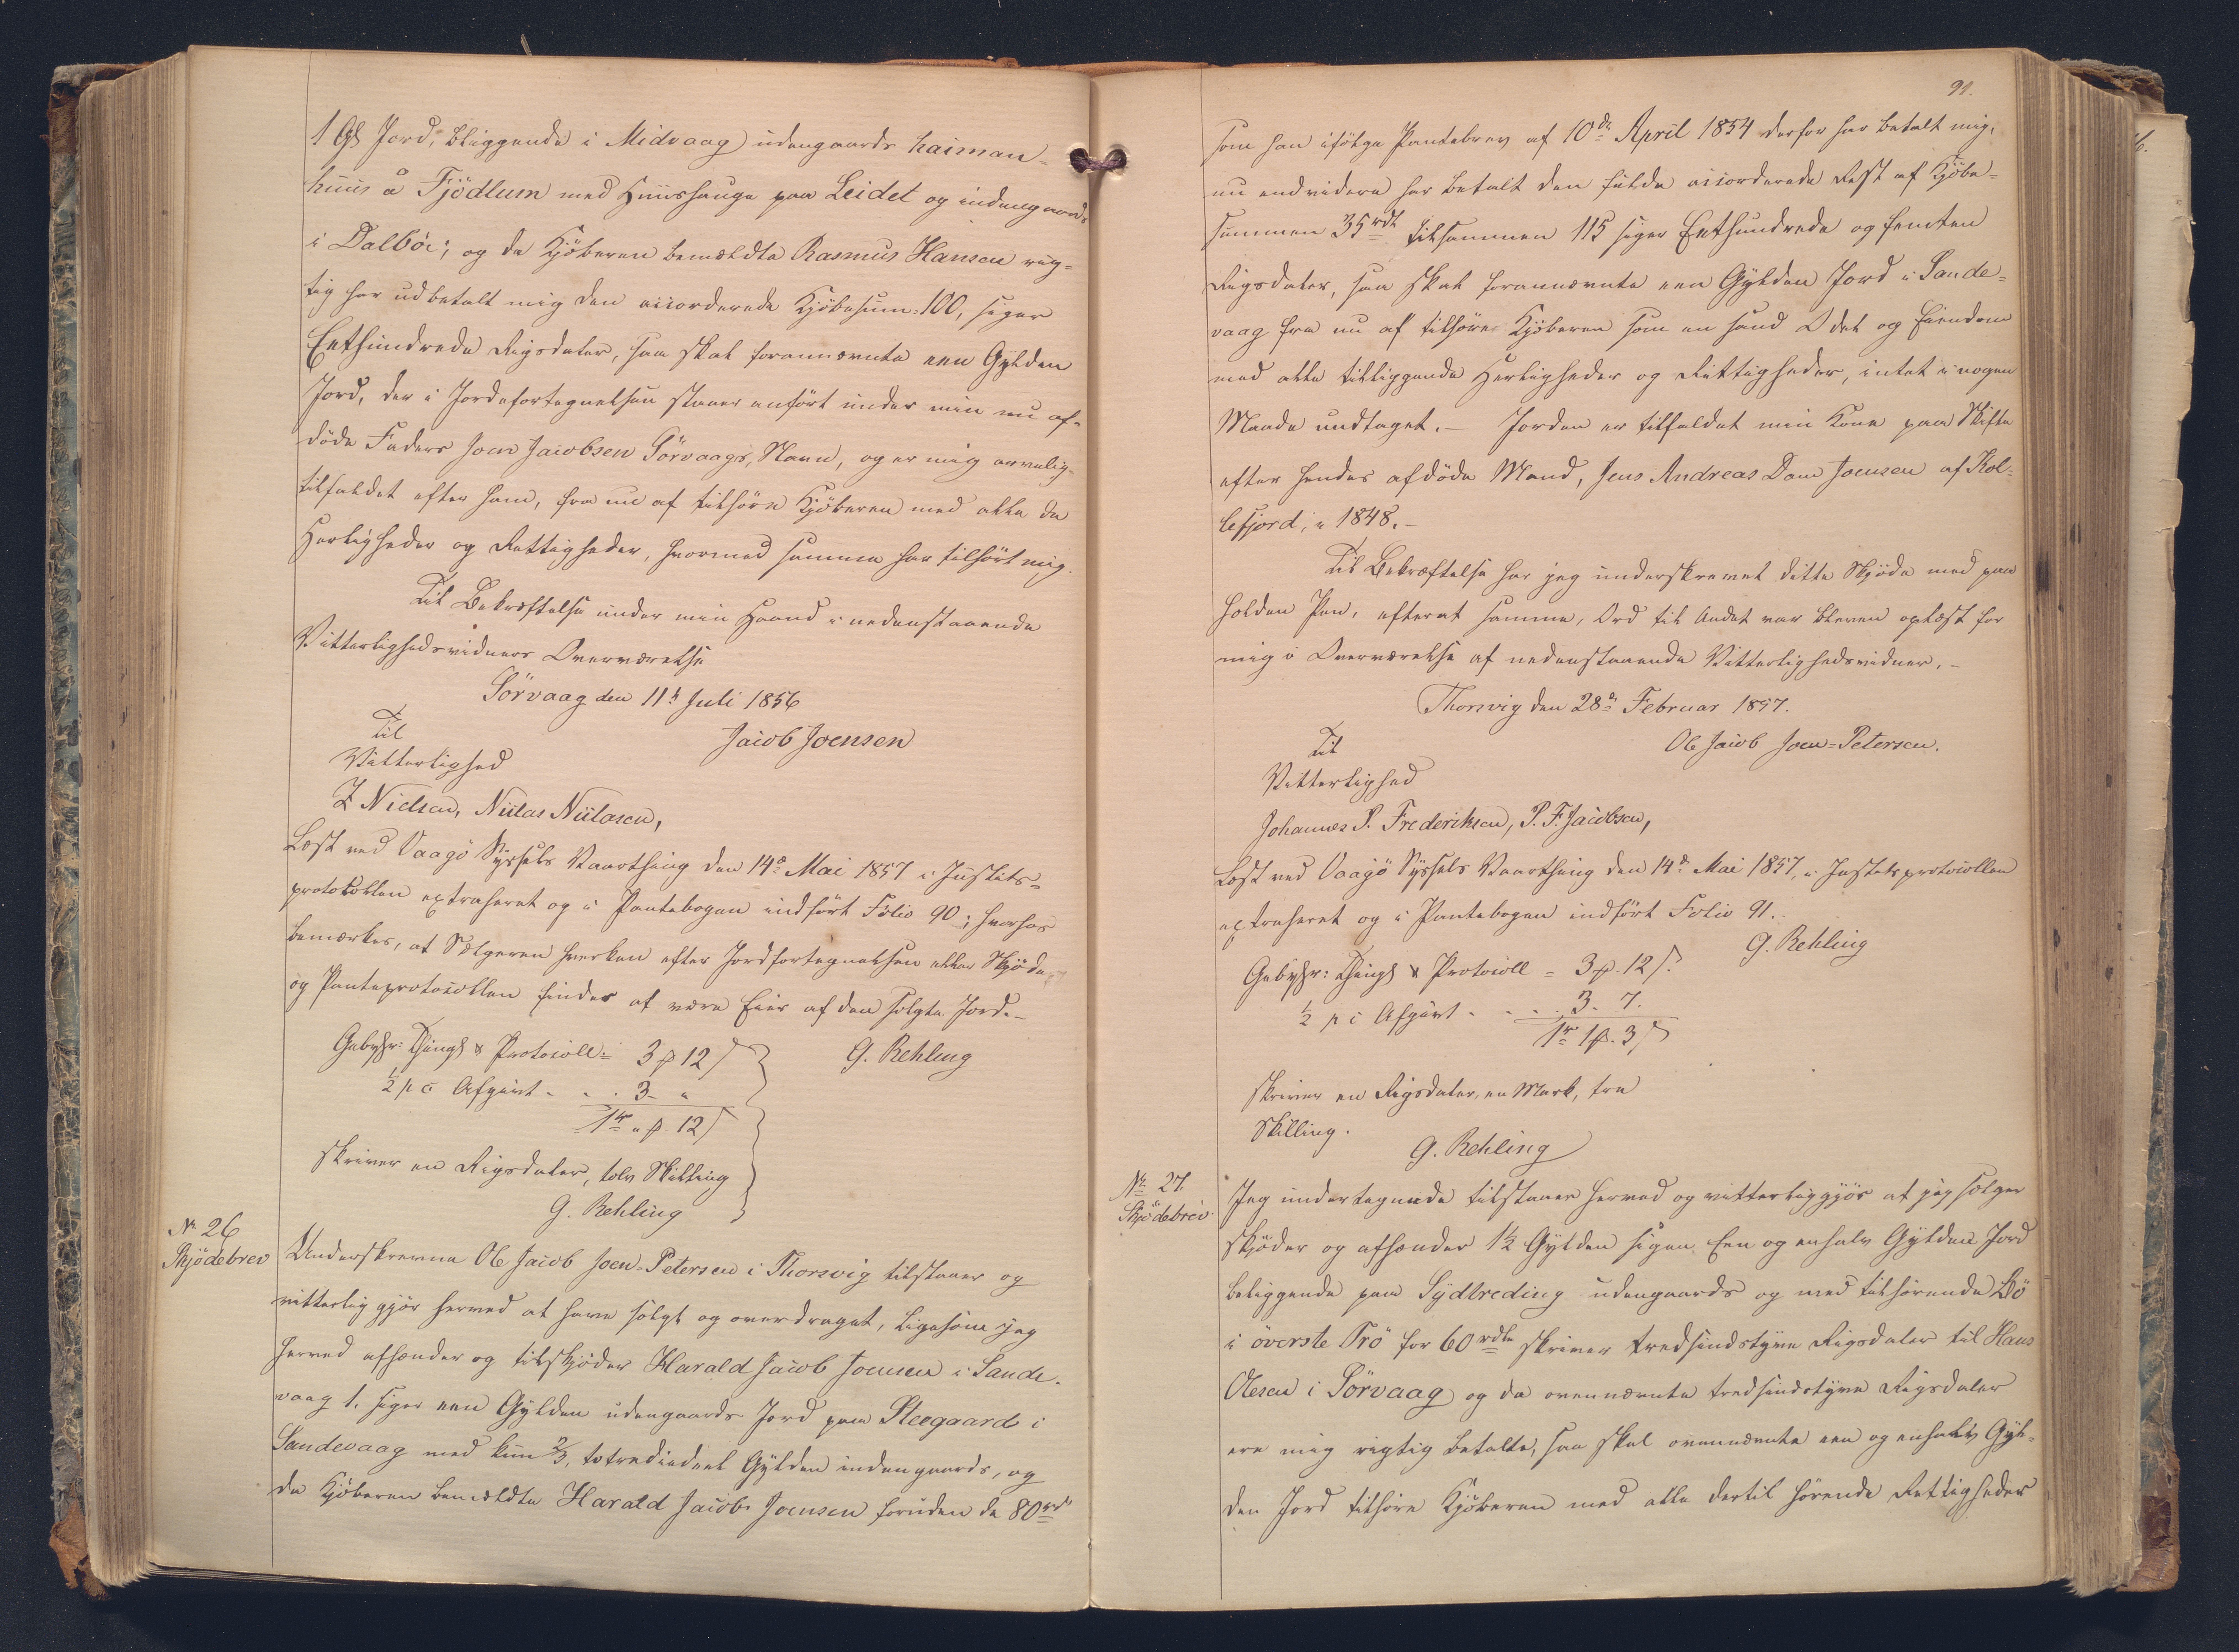 1 Gl Jord, beliggende i Midvaag udengaards haiman-
huus å Fjödlum med Huushauge paa Leidet og indengaards
i Dalböe; og da Kjöberen bemældte Rasmus Hansen rig-
tig har udbetalt mig den accorderede Kjöbesum: 100, siger
Eethundrede Rigsdaler, saa skal forannævnte een Gylden
Jord, der i Jordefortegnelsen staaer anfört under min nu af-
döde Faders Joen Jacobsen Sörvaags, Navn, og er mig arvelig
tilfaldet efter ham, fra nu af tilhöre Kjöberen med alle de
Herligheder og Rettigheder, hvormed samme har tilhört mig.
Til Bekræftelse under min Haand i nedenstaaende
Vitterlighedsvidners Overværelse
Sörvaag den 11te Juli 1856
Jacob Joensen
Til
Vitterlighed
Z Nielsen, Niilas Niilasen,
Læst ved Vaagö Syssels Vaarthing den 14de Mai 1857 i Justits-
protokollen extraheret og i Pantebogen indfört Folio 90; hvorhos
bemærkes, at Sælgeren hverken efter Jordfortegnelsen eller Skjöde
og Panteprotocollen findes at være Eier af den solgte Jord.-
Gebyhr: Things & Protocoll = 3 ß 12
G. Rehling
½ pC Afgivt - - . 3 - "
1rd " ß. 12
skriver en Rigsdaler, tolv Skilling
G. Rehling
No 26
Skjödebrev
Underskrevne Ole Jacob Joen-Petersen i Thorsvig tilstaaer og
vitterlig gjör herved at have solgt og overdraget, ligesom jeg
herved afhænder og tilskjöder Harald Jacob Joensen i Sande-
vaag 1. siger een Gylden udengaards Jord paa Steogaard i
Sandevaag med kun 2/3, totrediedeel Gylden indengaards, og
da Kjöberen bemældte Harald Jacob Joensen foruden de 80rd
91.
som han ifölge Pantebrev af 10de April 1854 derfor har betalt mig,
nu endvidere har betalt den fulde accorderede Rest af Kjöbe-
summen 35rdl tilsammen 115 siger Eethundrede og femten
Rigsdaler, saa skal forannævnte een Gylden Jord i Sande-
vaag fra nu af tilhöre Kjöberen som en sand Odel og Eiendom
med alle tilliggende Herligheder og Rettigheder, intet i nogen
Maade undtaget.- Jorden er tilfaldet min Kone paa Skifte
efter hendes afdöde Mand, Jens Andreas Dam Joensen af Kol-
lefjord, i 1848.-
Til Bekræftelse har jeg underskrevet dette Skjöde med paa
holden Pen, efterat samme, Ord til andet var bleven oplæst for
mig i Overværelse af nedenstaaende Vitterlighedsvidner.-
Thorsvig den 28de Februar 1857.
Ole Jacob Joen-Petersen.
Til
Vitterlighed
Johannes P. Frederiksen, P. F. Jacobsen,
Læst ved Vaagö Syssels Vaarthing den 14de Mai 1857, i Justitsprotocollen
extraheret og i Pantebogen indfört Folio 91.
G. Rehling
Gebyhr: Things & Protocoll = 3 ß. 12
½ pC Afgivt - - - . 3. 7.
1rd 1 ß. 3
skriver en Rigsdaler, en Mark, tre
Skilling.
G. Rehling
No 27.
Skjödebrev.
Jeg undertegnede tilstaaer herved og vitterliggjör at jeg sælger
skjöder og afhænder 1½ Gylden siger Een og enhalv Gylden Jord
beliggende paa Sydtreding udengaards og med tilhörende Bö
i överste Trö for 60rdle skriver tredsindstyve Rigsdaler til Hans
Olesen i Sörvaag og da ovennævnte tredsindstyve Rigsdaler
ere mig rigtig betalte, saa skal ovennævnte een og enhalv Gyl-
den Jord tilhöre Kjöberen med alle dertil hörende Rettigheder